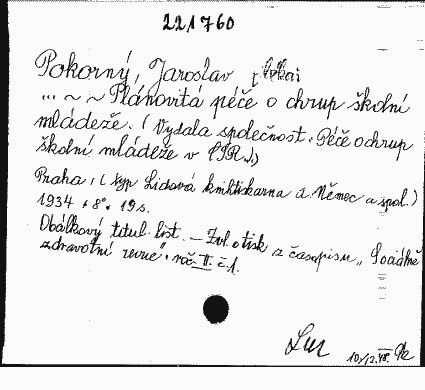 221760
Pokorný, Jaroslav
... ~ ~ Plánovitá péče o chrup školní
mládeže. (Vydala společnost „Péče o chrup
školní mládeže v ČSR.)
Praha, (typ. Lidová knihtiskárna A. Němec a spol.)
1934. 8°. 19 s.
Obálkový titul. list. — Zvl. otisk z časopisu „Sociálně
zdravotní revue“ roč. II. č. 1.
10/12.48.